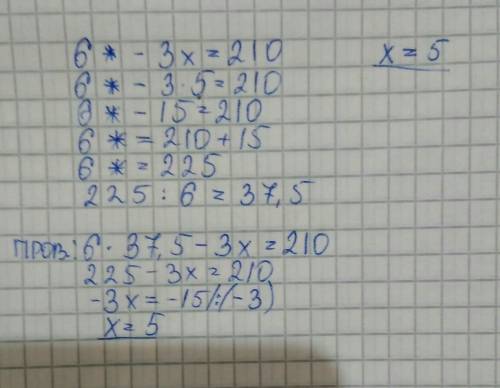 6 * - 3x = 210
x = 5
6 * - 3·5 = 210
6 * - 15 = 210
6 * = 210 + 15
6 * = 225
225 : 6 = 37,5
пров: 6 · 37,5 - 3x = 210
225 - 3x = 210
-3x = -15 /:(-3)
x = 5